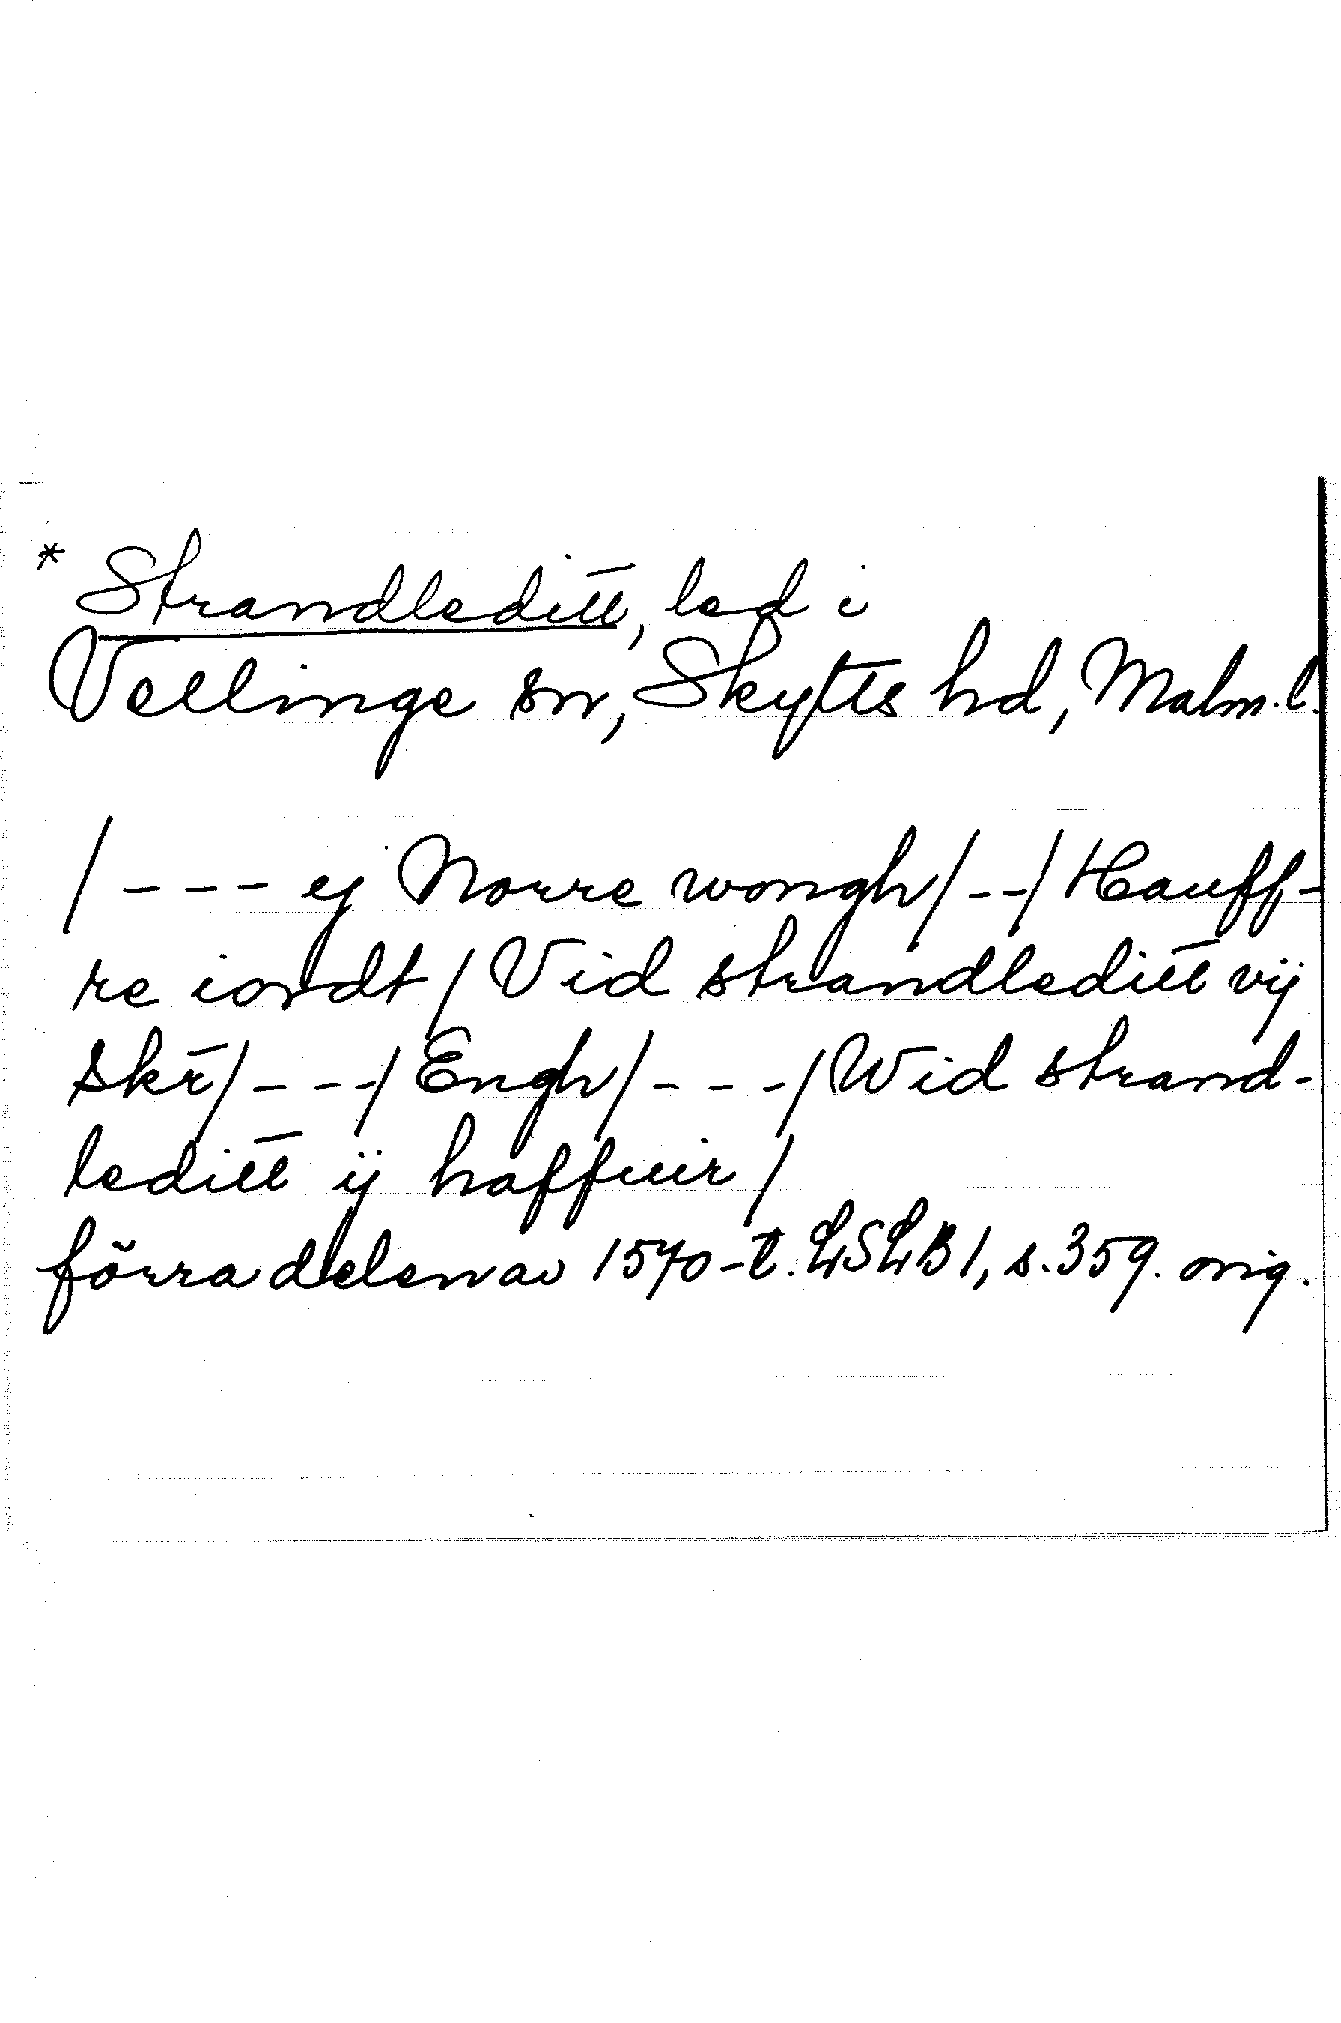 * Strandleditt, led i
Vellinge sn, Skytts hd, Malm.l.
/--- ej Norre wongh/--/Hauff-
re iordt/Vid strandleditt vij
skr̄/---/Engh/---/Wid strand-
leditt ij haffuir/
förra delen av 1570-t. LSLB 1, s.359. orig.